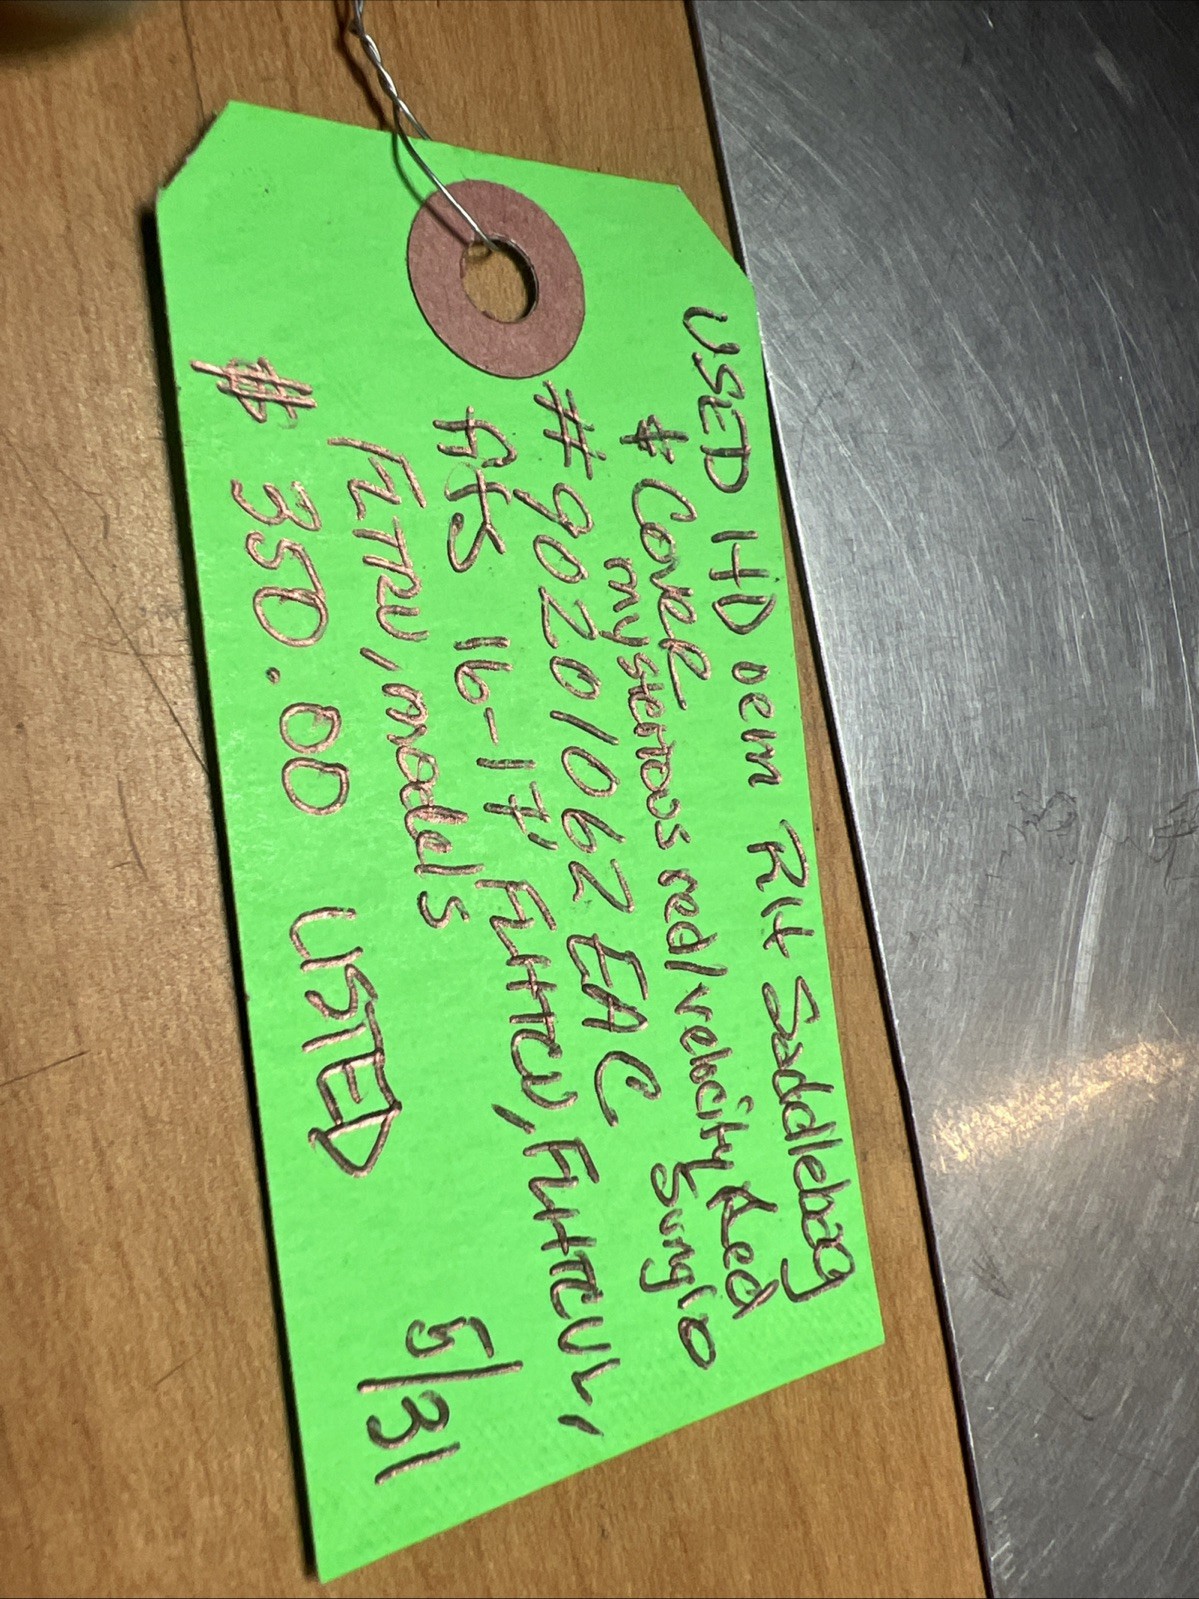 USED HD oem RH Saddlebag
& Cover
mysterious red/velocity Red
Sunglo
#90201062EAC
Fits 16-17, FLHTCU, FLHTCUL,
FLTRU, models
$350.00 USED 5/31